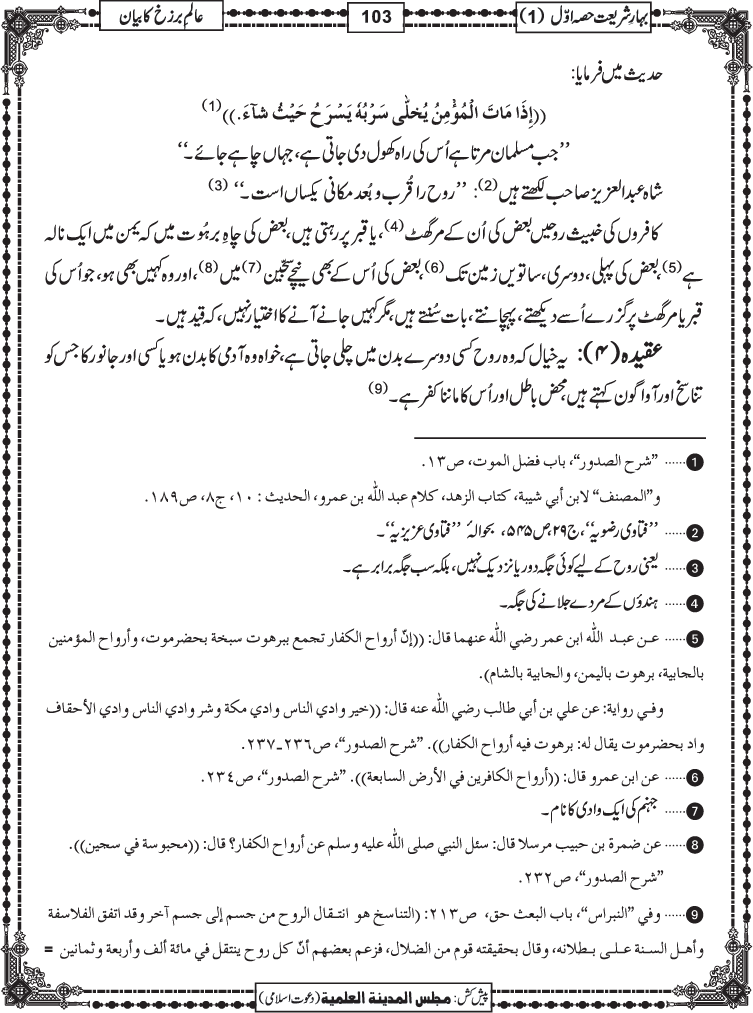 بہارِ شریعت حصہ اوّل (1)
103
عالمِ برزخ کا بیان
حدیث میں فرمایا:
((إِذَا مَاتَ الْمُؤْمِنُ يُخَلّٰى سَرْبُهٗ يَسْرَحُ حَيْثُ شآءَ.)) (1)
’’جب مسلمان مرتا ہے اُس کی راہ کھول دی جاتی ہے، جہاں چاہے جائے۔‘‘
شاہ عبدالعزیز صاحب لکھتے ہیں (2): ’’روح را قُرب و بُعد مکانی یکساں است۔‘‘ (3)
کافروں کی خبیث روحیں بعض کی اُن کے مرگھٹ (4)، یا قبر پر رہتی ہیں، بعض کی چاہِ برہُوت میں کہ یمن میں ایک نالہ
ہے (5)، بعض کی پہلی، دوسری، ساتویں زمین تک (6)، بعض کی اُس کے بھی نیچے سجّین (7) میں (8)، اور وہ کہیں بھی ہو، جو اُس کی
قبر یا مرگھٹ پر گزرے اُسے دیکھتے، پہچانتے، بات سُنتے ہیں، مگر کہیں جانے آنے کا اختیار نہیں، کہ قید ہیں۔
عقیدہ (۴): یہ خیال کہ وہ روح کسی دوسرے بدن میں چلی جاتی ہے، خواہ وہ آدمی کا بدن ہو یا کسی اور جانور کا جس کو
تناسخ اور آواگون کہتے ہیں، محض باطل اور اُس کا ماننا کفر ہے۔ (9)
1 ...... ”شرح الصدور“، باب فضل الموت، ص۱۳.
و”المصنف“ لابن أبي شيبة، كتاب الزهد، كلام عبد الله بن عمرو، الحديث : ۱۰، ج۸، ص۱۸۹.
2 ...... ’’فتاوی رضویہ‘‘، ج۲۹، ص۵۴۵، بحوالۂ ’’فتاوی عزیزیہ‘‘۔
3 ...... یعنی روح کے لیے کوئی جگہ دور یا نزدیک نہیں، بلکہ سب جگہ برابر ہے۔
4 ...... ہندوؤں کے مردے جلانے کی جگہ۔
5 ...... عن عبد الله ابن عمر رضي الله عنهما قال: ((إنّ أرواح الكفار تجمع ببرهوت سبخة بحضرموت، وأرواح المؤمنين
بالجابية، برهوت باليمن، والجابية بالشام).
وفي رواية: عن علي بن أبي طالب رضي الله عنه قال: ((خير وادي الناس وادي مكة وشر وادي الناس وادي الأحقاف
واد بحضرموت يقال له: برهوت فيه أرواح الكفار)). ”شرح الصدور“، ص۲۳۶ـ۲۳۷.
6 ...... عن ابن عمرو قال: ((أرواح الكافرين في الأرض السابعة)). ”شرح الصدور“، ص۲۳٤.
7 ...... جہنم کی ایک وادی کا نام۔
8 ...... عن ضمرة بن حبيب مرسلا قال: سئل النبي صلى الله عليه وسلم عن أرواح الكفار؟ قال: ((محبوسة في سجين)).
”شرح الصدور“، ص۲۳۲.
9 ...... وفي ”النبراس“، باب البعث حق، ص۲۱۳: (التناسخ هو انتقال الروح من جسم إلى جسم آخر وقد اتفق الفلاسفة
وأهل السنة على بطلانه، وقال بحقيقته قوم من الضلال، فزعم بعضهم أنّ كل روح ينتقل في مائة ألف وأربعة وثمانين =
پیش کش: مجلس المدينة العلمية (دعوت اسلامی)